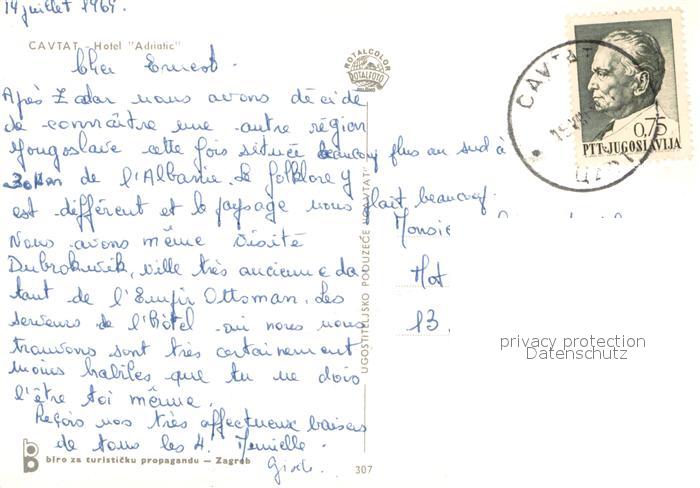 14 juillet 1969.
CAVTAT - Hotel "Adriatic"
Cher Ernest.
Après Zadar nous avons décidé
de connaître une autre région
Yougoslave cette fois située beaucoup plus au sud à
30 km de l'Albanie. Le folklore y
est différent et le paysage nous plait beaucoup.
Nous avons même visité
Dubrokwik, ville très ancienne da
tant de l'Empir Ottoman. Les
serveurs de l'Hôtel où nous nous
trouvons sont très certainement
moins habiles que tu ne dois
l'être toi même.
Reçois nos très affectueux baisers
de tous les 4.
biro za turističku propagandu — Zagreb
307
ROTALCOLOR
ROTALFOTO
UGOSTITELJSKO PODUZEĆE "CAVTAT"
CAVTAT
0,75
PTT JUGOSLAVIJA
Monsie
Hot
13.
privacy protection
Datenschutz